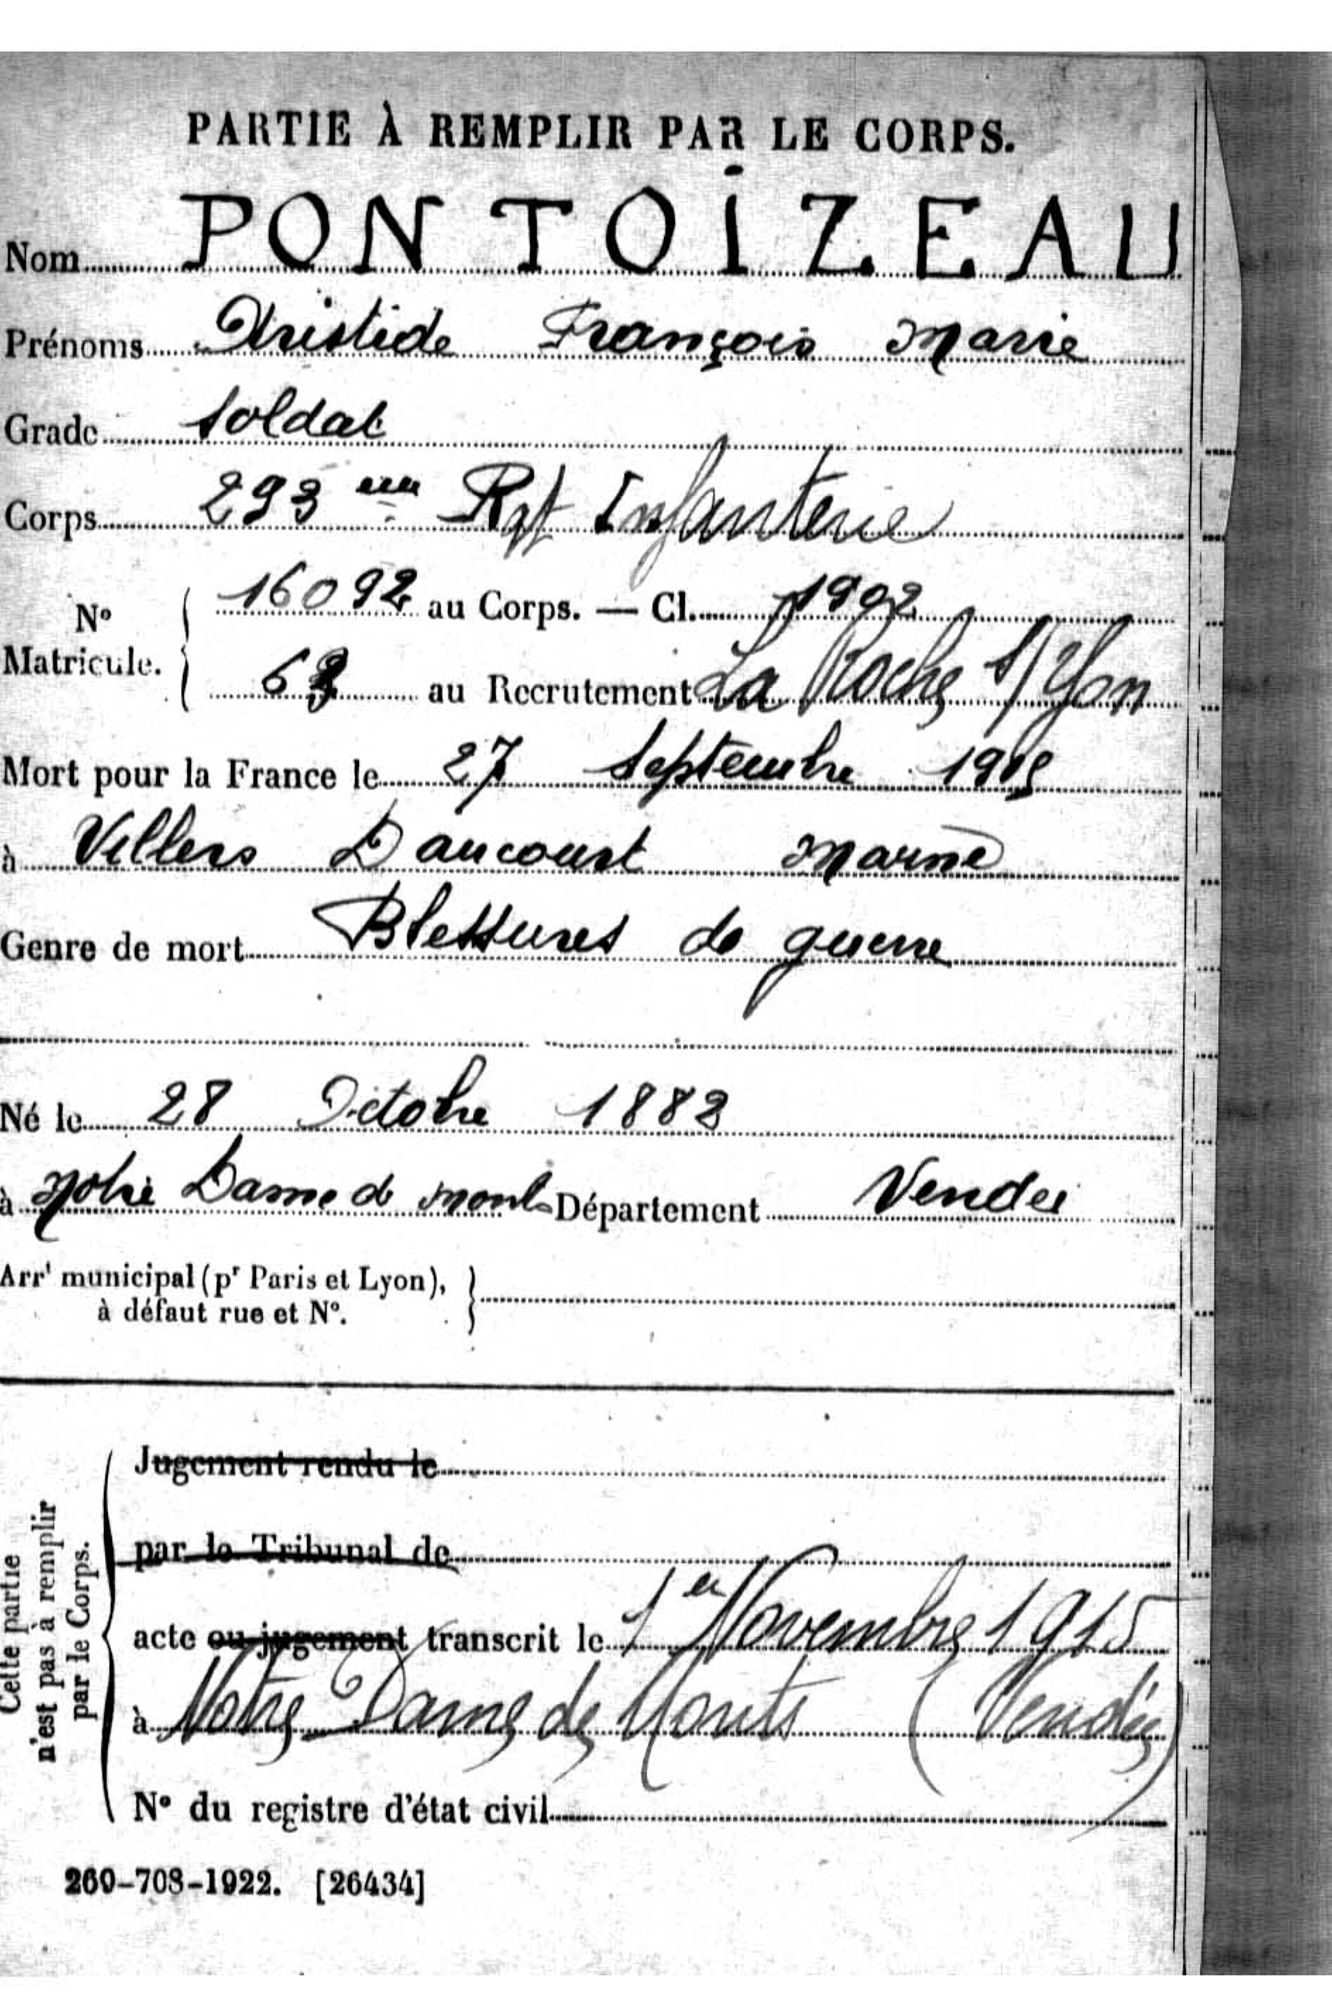 PARTIE À REMPLIR PAR LE CORPS.
Nom PONTOIZEAU
Prénoms Aristide François Marie
Grade Soldat
Corps 293 eme Rgt Infanterie
N° Matricule. { 16092 au Corps. — Cl. 1902
63 au Recrutement La Roche s/ Yon
Mort pour la France le 27 Septembre 1915
à Villers Daucourt Marne
Genre de mort Blessures de guerre
Né le 28 Octobre 1882
à Notre Dame d Monts Département Vendée
Arrt municipal (pr Paris et Lyon),
à défaut rue et N°.
Cette partie
n'est pas à remplir
par le Corps.
Jugement rendu le
par le Tribunal de
acte ou jugement transcrit le 1er Novembre 1915
à Notre Dame de Monts (Vendée)
N° du registre d'état civil
260-708-1922. [26434]